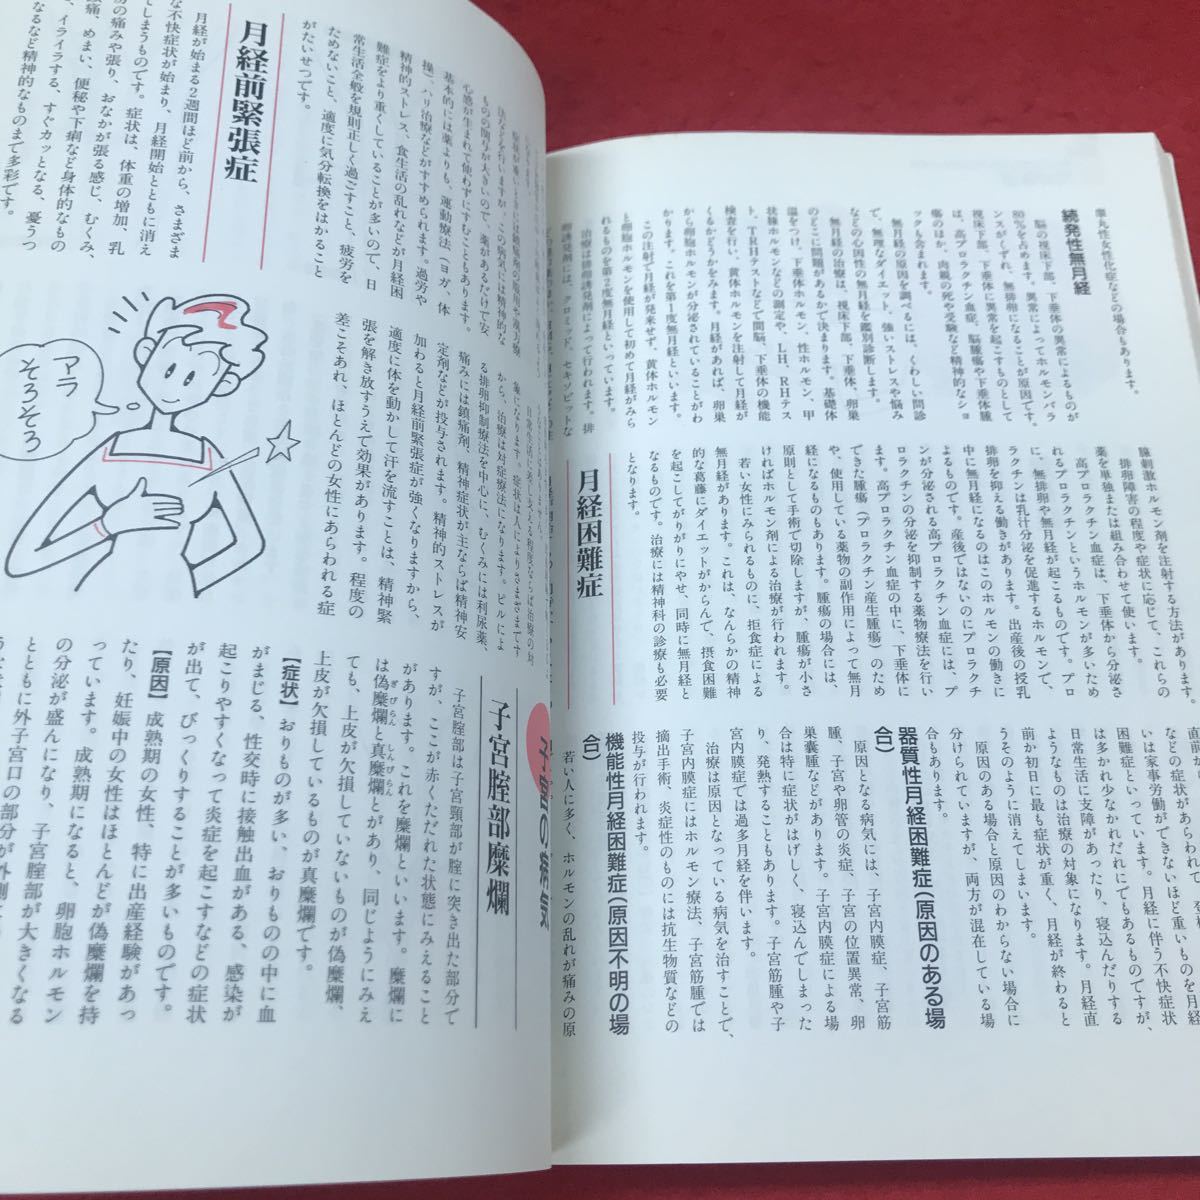 睾丸性女性化症などの場合もあります。
続発性無月経
脳の視床下部、下垂体の異常によるものが
80％を占めます。異常によってホルモンバラ
ンスがくずれ、無排卵になることが原因です。
視床下部、下垂体に異常を起こすものとして
は、高プロラクチン血症、脳腫瘍や下垂体腫
瘍のほか、肉親の死や受験など精神的なショ
ックも含まれます。
無月経の原因を調べるには、くわしい問診
で、無理なダイエット、強いストレスや悩み
などの心因性の無月経を鑑別診断します。
無月経の治療は、視床下部、下垂体、卵巣
のどこに問題があるかで決まります。基礎体
温をつけ、下垂体ホルモン、性ホルモン、甲
状腺ホルモンなどの測定や、LH、RHテス
ト、TRHテストなどで間脳、下垂体の機能
検査を行い、黄体ホルモンを注射して月経が
くるかどうかをみます。月経があれば、卵巣
から卵胞ホルモンが分泌されていることがわ
かります。これを第1度無月経といいます。
この注射で月経が発来せず、黄体ホルモン
と卵胞ホルモンを使用して初めて月経がみら
れるものを第2度無月経といっています。
治療は排卵誘発剤によって行われます。排
卵誘発剤には、クロミッド、セキソビットな
腺刺激ホルモン剤を注射する方法があります。
排卵障害の程度や症状に応じて、これらの
薬を単独または組み合わせて使います。
高プロラクチン血症は、下垂体から分泌さ
れるプロラクチンというホルモンが多いため
に、無排卵や無月経が起こるものです。プロ
ラクチンは乳汁分泌を促進するホルモンで、
排卵を抑える働きがあります。出産後の授乳
中に無月経になるのはこのホルモンの働きに
よるものです。産後ではないのにプロラクチ
ンが分泌される高プロラクチン血症には、プ
ロラクチンの分泌を抑制する薬物療法を行い
ます。高プロラクチン血症の中に、下垂体に
できた腫瘍（プロラクチン産生腫瘍）のため
や、使用している薬物の副作用によって無月
経になるものもあります。腫瘍の場合には、
原則として手術で切除しますが、腫瘍が小さ
ければホルモン剤による治療が行われます。
若い女性にみられるものに、拒食症による
無月経があります。これは、なんらかの精神
的な葛藤にダイエットがからんで、摂食困難
を起こしてがりがりにやせ、同時に無月経と
なるものです。治療には精神科の診療も必要
となります。
月経困難症
困難症といっています。月経に伴う不快症状
は多かれ少なかれだれにでもあるものですが、
日常生活に支障があったり、寝込んだりする
ようなものは治療の対象になります。月経直
前か初日に最も症状が重く、月経が終わると
うそのように消えてしまいます。
原因のある場合と原因のわからない場合に
分けられていますが、両方が混在している場
合もあります。
器質性月経困難症（原因のある場
合）
原因となる病気には、子宮内膜症、子宮筋
腫、子宮や卵管の炎症、子宮の位置異常、卵
巣嚢腫などがあります。子宮内膜症による場
合は特に症状がはげしく、寝込んでしまった
り、発熱することもあります。子宮筋腫や子
宮内膜症では過多月経を伴います。
治療は原因となっている病気を治すことで、
子宮内膜症にはホルモン療法、子宮筋腫では
摘出手術、炎症性のものには抗生物質などの
投与が行われます。
機能性月経困難症（原因不明の場
合）
若い人に多く、ホルモンの乱れが痛みの原
心感が生まれて使わずにすむこともあります。
基本的には薬よりも、運動療法（ヨガ、体
操）、ハリ治療などがすすめられます。過労や
精神的ストレス、食生活の乱れなどが月経困
難症をより重くしていることが多いので、日
常生活全般を規則正しく過ごすこと、疲労を
ためないこと、適度に気分転換をはかること
がたいせつです。
月経前緊張症
月経が始まる2週間ほど前から、さまざま
な不快症状が始まり、月経開始とともに消え
てしまうものです。症状は、体重の増加、乳
房の痛みや張り、おなかが張る感じ、むくみ、
頭痛、めまい、便秘や下痢など身体的なもの
、イライラする、すぐカッとなる、憂うつ
なるなど精神的なものまで多彩です。
から、治療は対症療法になります。ピルによ
る排卵抑制療法を中心に、むくみには利尿薬、
痛みには鎮痛剤、精神症状が主ならば精神安
定剤などが投与されます。精神的ストレスが
加わると月経前緊張症が強くなりますから、
適度に体を動かして汗を流すことは、精神緊
張を解き放すうえで効果があります。程度の
差こそあれ、ほとんどの女性にあらわれる症
アラ
そろそろ
子宮の病気
子宮腟部糜爛
子宮腟部は子宮頸部が腟に突き出た部分で
すが、ここが赤くただれた状態にみえること
があります。これを糜爛といいます。糜爛に
は偽糜爛と真糜爛とがあり、同じようにみえ
ぎびらん しんびらん
ても、上皮が欠損していないものが偽糜爛、
上皮が欠損しているものが真糜爛です。
【症状】おりものが多い、おりものの中に血
がまじる、性交時に接触出血がある、感染が
起こりやすくなって炎症を起こすなどの症状
が出て、びっくりすることが多いものです。
【原因】成熟期の女性、特に出産経験があっ
たり、妊娠中の女性はほとんどが偽糜爛を持
っています。成熟期になると、卵胞ホルモン
の分泌が盛んになり、子宮腟部が大きくなる
とともに外子宮口の部分が外側